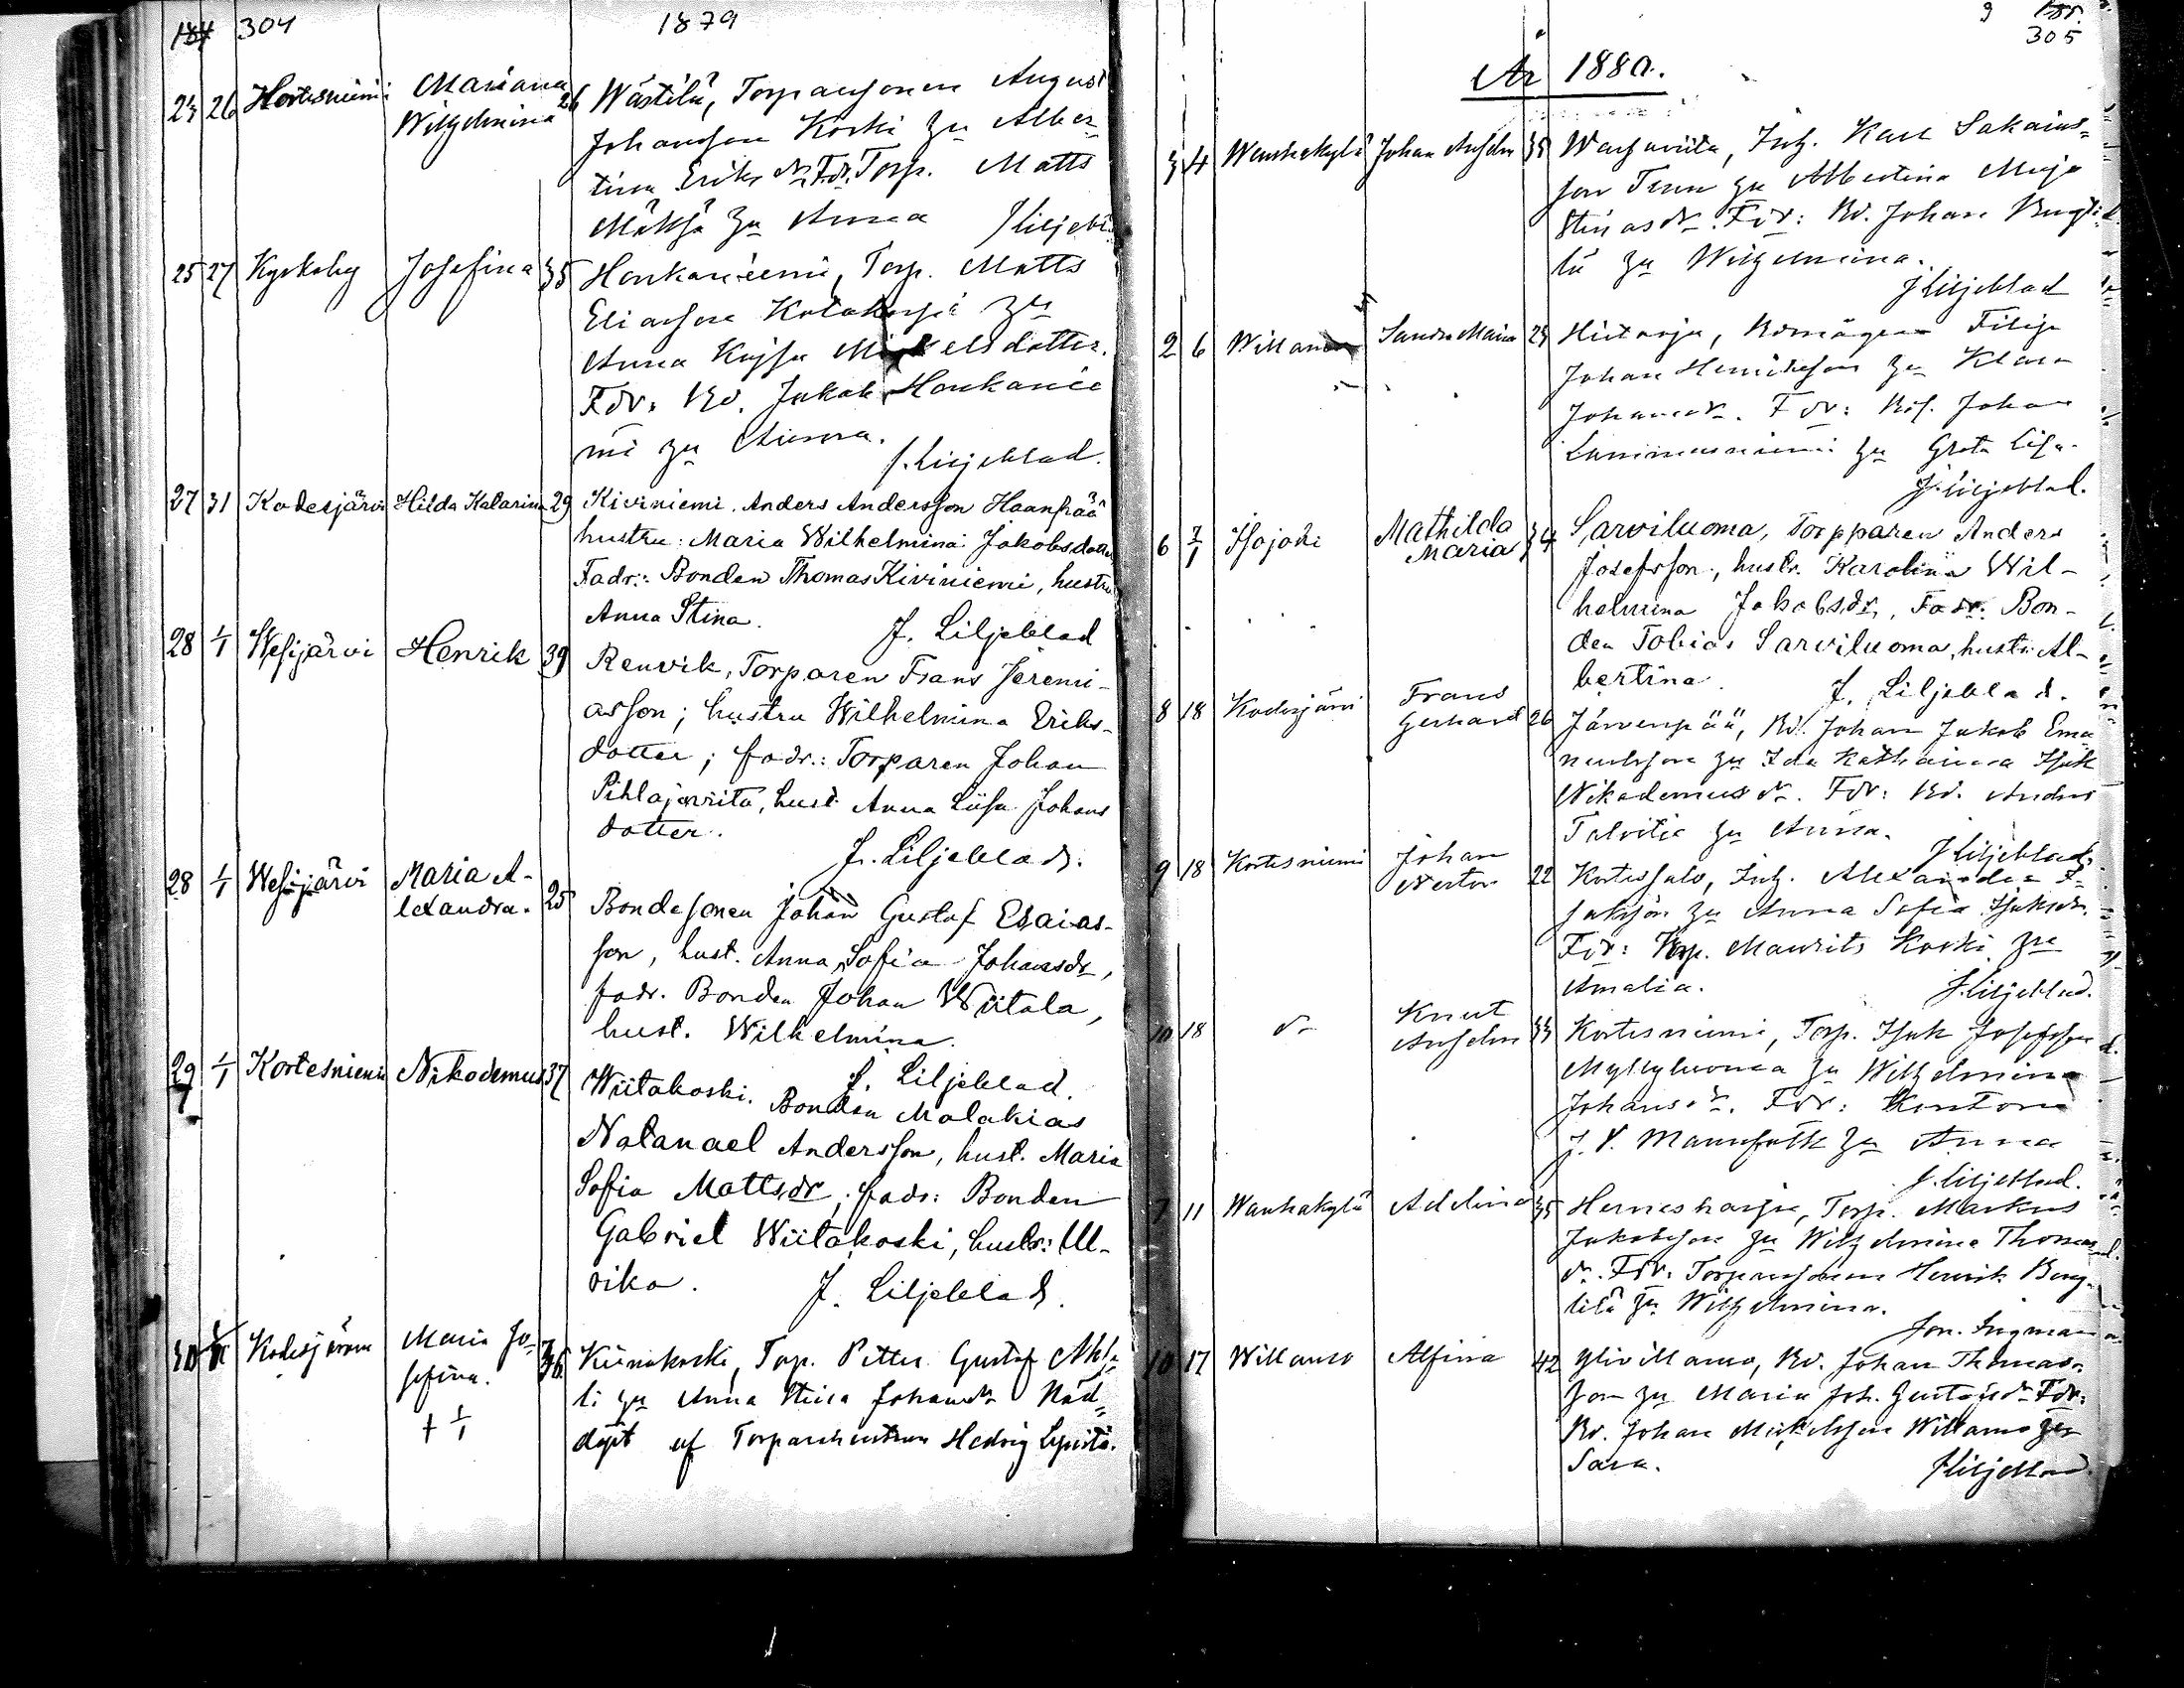 184 304 1879
23 26 Kortesniemi Mariana Wilhelmina 26 Wästilä, Torparesonen August
Johansson Koski hu Alber-
tina Eriks dr. Fdr. Torp. Matts
Mäkihu Anna J Liljebl.
25 27 Kyrkoby Josefina 35 Honkaniemi, Torp. Matts
Eliasson Kotaharju hu
Anna Kajsa Mickelsdotter.
Fdr. Bd. Jakob Honkanie
mi hu Anna.
J. Liljeblad.
27 31 Kodesjärvi Hilda Katarina 29 Kiviniemi. Anders Andersson Haanpää
hustru: Maria Wilhelmina Jakobsdotter
Fadr.: Bonden Thomas Kiviniemi, hustru
Anna Stina. J. Liljeblad
28 1/1 Wesijärvi Henrik 39 Renvik, Torparen Frans Jeremi-
asson; hustru Wilhelmina Eriks-
dotter; fadr.: Torparen Johan
Pihlajaviita, hust. Anna Liisa Johans
dotter.
J. Liljeblad.
28 1/1 Wesijärvi Maria A-
lexandra. 25 Bondesonen Johan Gustaf Esaias-
son, hust. Anna Sofia Johansdr,
fadr. Bonden Johan Wiitala,
hust. Wilhelmina.
J. Liljeblad.
29 1/1 Kortesniemi Nikodemus 37 Wiitakoski. Bonden Malakias
Natanael Andersson, hust. Maria
Sofia Mattsdr, fadr: Bonden
Gabriel Wiitakoski, hustr: Ul-
rika. J. Liljeblad.
30 Kodesjärvi Maria Jo-
sefina. 36 Kiinakoski, Torp. Petter Gustaf
hu Anna Stina Johansdr Nöd-
döpt af Torparehustrun Hedvig
† 1/1
305
År 1880.
3 4 Wanhakylä Johan Anselm 35 Inh. Karl Sakarias-
son hu Albertina Maja
Stinasdr. Fdr: Bd. Johan
hu Wilhelmina.
J Liljeblad
2 6 Sandra Maria 23 Hietarju, Bdmågen Filip
Johan Henriksson hu Klara
Johansdr. Fdr: Johan
hu Greta Lisa.
J. Liljeblad.
6 7/1 Isojoki Mathilda
Maria 34 Sarviluoma, Torpparen Anders
Josefsson, hustr. Karolina Wil-
helmina Jakobsdr, Fadr. Bon-
den Tobias Sarviluoma, hustr: Al-
bertina. J. Liljeblad.
8 18 Kodesjärvi Frans
Gerhard 26 Järvenpää, Bd. Johan Jakob Ema-
nuelsson hu Ida Katharina Isak
Nikodemus dr. Fdr: Bd. Anders
Talvitie hu Anna.
J Liljeblad.
9 18 Kortesniemi Johan
Nestor 22 Kortessalo, Inh. Alexander I-
saksson hu Anna Sofia Isaksdr.
Fdr: Torp. Maurits Koski hu
Amalia. J. Liljeblad.
10 18 dr Knut
Anselm 33 Kortesniemi, Torp. Isak Josefsson
Myllyluoma hu Wilhelmina
Johansdr. Fdr: Kantorn
J. V. Mannfolk hu Anna
J. Liljeblad.
7 11 Wanhakylä Adelina 35 Hernesharju, Torp. Markus
Jakobsson hu Wilhelmina Thomas
dr. Fdr: Torparesonen Henrik
hu Wilhelmina.
Jon. Ingman
10 17 Willamo Alfina 42 Yliwillamo, Bd. Johan Thomas-
son hu Maria Joh. Gustafsdr Fdr:
Bd. Johan Mickelsson Willamo hu
Sara. J Liljeblad.